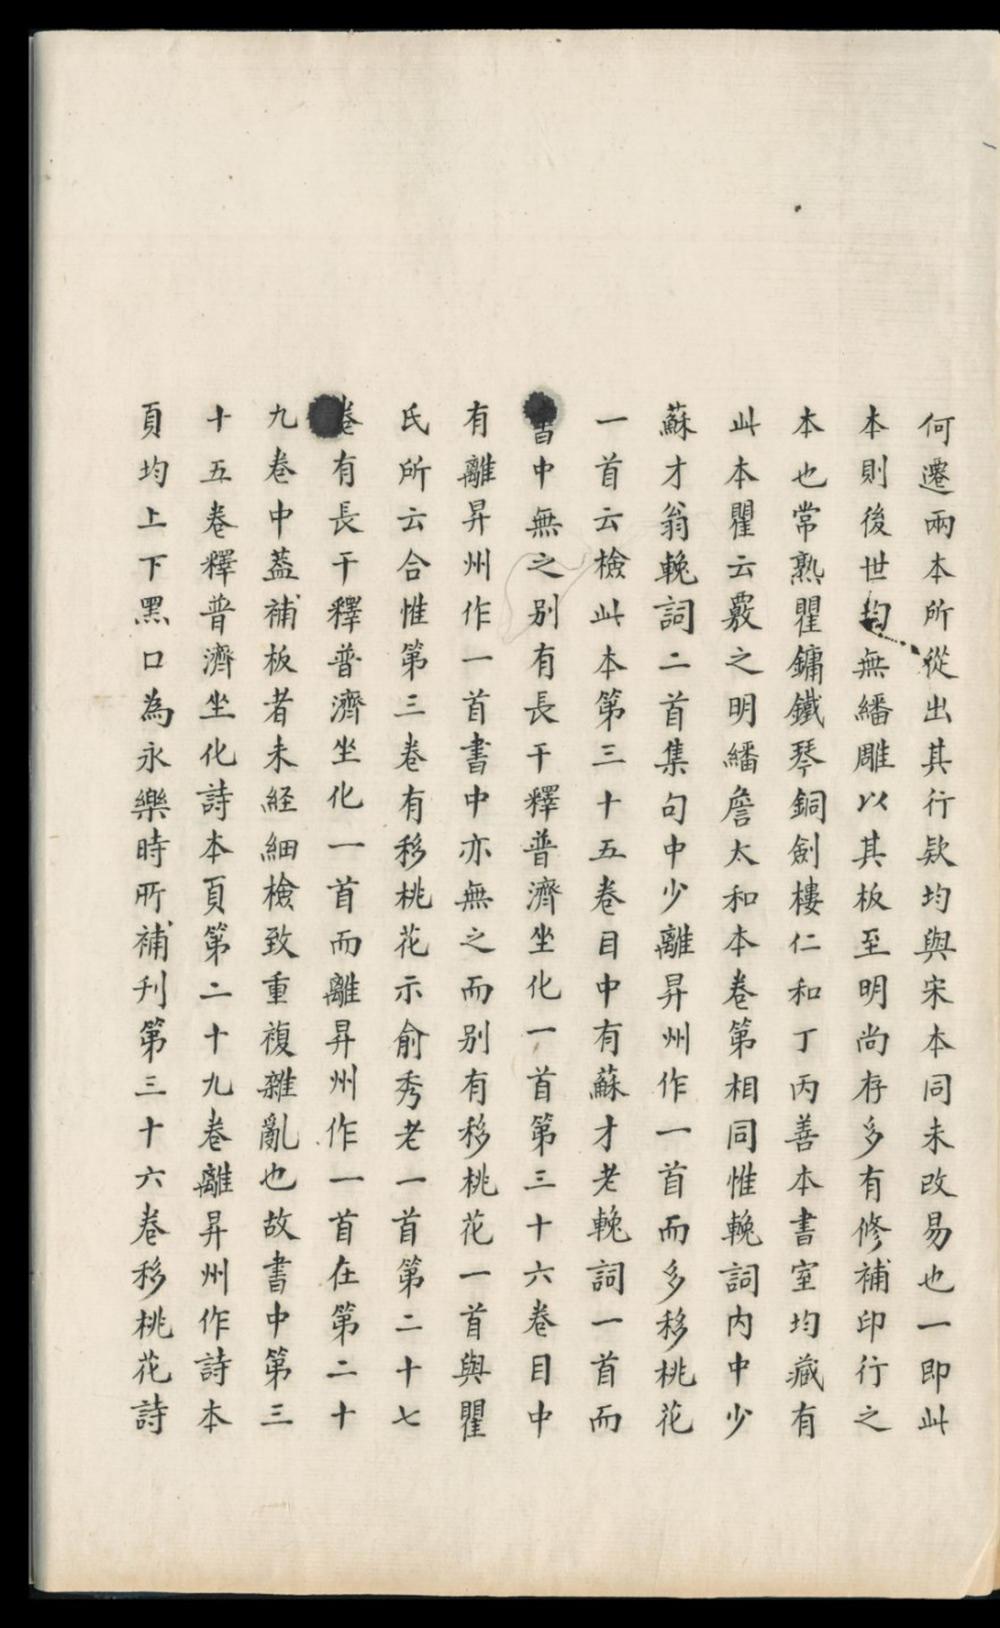 何遷兩本所從出其行款均與宋本同未改易也一即此
本則後世均無繙雕以其板至明尚存多有修補印行之
本也常熟瞿鏞鐵琴銅劍樓仁和丁丙善本書室均藏有
此本瞿云覈之明繙詹太和本卷第相同惟輓詞内中少
蘇才翁輓詞二首集句中少離昇州作一首而多移桃花
一首云檢此本第三十五卷目中有蘇才老輓詞一首而
書中無之别有長干釋普濟坐化一首第三十六卷目中
有離昇州作一首書中亦無之而别有移桃花一首與瞿
氏所云合惟第三卷有移桃花示俞秀老一首第二十七
卷有長干釋普濟坐化一首而離昇州作一首在第二十
九卷中葢補板者未経細檢致重複雜亂也故書中第三
十五卷釋普濟坐化詩本頁第二十九卷離昇州作詩本
頁均上下黑口為永樂時所補刋第三十六卷移桃花詩